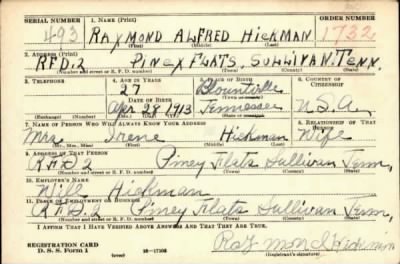 SERIAL NUMBER 1. NAME (Print) ORDER NUMBER
493 RAYMOND ALFRED HICKMAN 1732
(First) (Middle) (Last)
2. ADDRESS (Print)
RFD.2 PINEY FLATS, SULLIVAN, TENN.
(Number and street or R. F. D. number) (Town) (County) (State)
3. TELEPHONE 4. AGE IN YEARS 5. PLACE OF BIRTH 6. COUNTRY OF CITIZENSHIP
27 Blountville
DATE OF BIRTH (Town or county)
Apr 28 1913 Tennessee U.S.A.
(Exchange) (Number) (Mo.) (Day) (Yr.) (State or country)
7. NAME OF PERSON WHO WILL ALWAYS KNOW YOUR ADDRESS 8. RELATIONSHIP OF THAT PERSON
Mrs. Irene Hickman Wife
(Mr., Mrs., Miss) (First) (Middle) (Last)
9. ADDRESS OF THAT PERSON
RFD 2 Piney Flats Sullivan Tenn.
(Number and street or R. F. D. number) (Town) (County) (State)
10. EMPLOYER'S NAME
Hickman
11. PLACE OF EMPLOYMENT OR BUSINESS
RFD.2 Piney Flats Sullivan Tenn.
(Number and street or R. F. D. number) (Town) (County) (State)
I AFFIRM THAT I HAVE VERIFIED ABOVE ANSWERS AND THAT THEY ARE TRUE.
REGISTRATION CARD
D. S. S. Form 1
Raymond Hickman
(Registrant's signature)